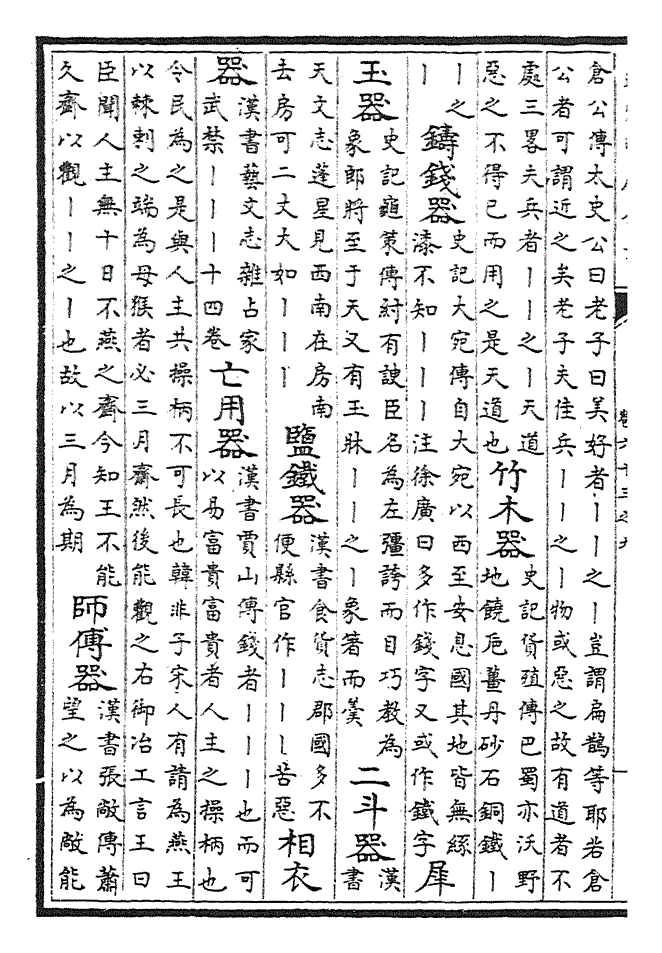 倉公傳太史公曰老子曰美好者丨丨之丨豈謂扁鵲等耶若倉
公者可謂近之矣老子夫佳兵丨丨之丨物或惡之故有道者不
處三畧夫兵者丨丨之丨天道
惡之不得已而用之是天道也
竹木器
史記貨殖傳巴蜀亦沃野
地饒巵薑丹砂石銅鐵丨
丨之
丨
鑄錢器
史記大宛傳自大宛以西至安息國其地皆無絲
漆不知丨丨丨注徐廣曰多作錢字又或作鐵字
犀
玉器
史記龜策傳紂有諛臣名為左彊誇而目巧教為
象郎將至于天又有玉牀丨丨之丨象箸而羹
二斗器
漢
書
天文志蓬星見西南在房南
去房可二丈大如丨丨丨
鹽鐵器
漢書食貨志郡國多不
便縣官作丨丨丨苦惡
相衣
器
漢書藝文志雜占家
武禁丨丨丨十四卷
亡用器
漢書賈山傳錢者丨丨丨也而可
以易富貴富貴者人主之操柄也
令民為之是與人主共操柄不可長也韓非子宋人有請為燕王
以棘刺之端為母猴者必三月齋然後能觀之右御冶工言王曰
臣聞人主無十日不燕之齋今知王不能
久齋以觀丨丨之丨也故以三月為期
師傅器
漢書張敞傳蕭
望之以為敞能